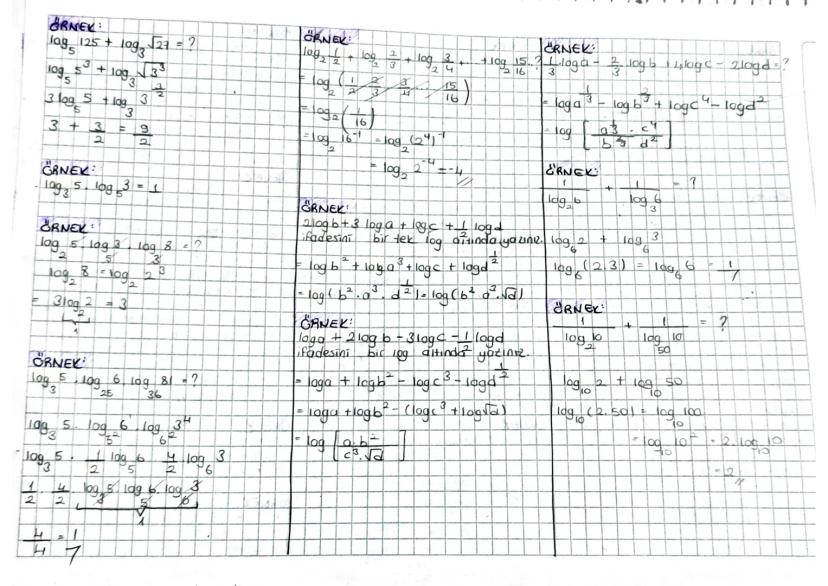 ÖRNEK:
log₅125 + log₃√27 = ?
log₅5³ + log₃√3³
3log₅5 + log₃3^(3/2)
3 + 3/2 = 9/2
ÖRNEK:
log₃5 . log₅3 = 1
ÖRNEK:
log₂5 . log₅3 . log₃8 = ?
log₂8 = log₂2³
= 3log₂2 = 3
1
ÖRNEK:
log₃5 . log₂₅6 . log₃₆81 = ?
log₃5 . log₅²6 . log₆²3⁴
log₃5 . 1/2 log₅6 4/2 log₆3
1/2 . 4/2 . log₃5 log₅6 log₆3
1
4/4 = 1
ÖRNEK:
log₂1/2 + log₂2/3 + log₂3/4 + ... + log₂15/16 ?
= log₂(1/2 . 2/3 . 3/4 ... 15/16)
= log₂(1/16)
= log₂16⁻¹ = log₂(2⁴)⁻¹
= log₂2⁻⁴ = -4
ÖRNEK:
2logb + 3loga + logc + 1/2 logd
ifadesini bir tek log altında yazınız.
= logb² + loga³ + logc + logd^(1/2)
= log(b² . a³ . d^(1/2)) = log(b² . a³ . √d)
ÖRNEK:
loga + 2logb - 3logc - 1/2 logd
ifadesini bir log altında yazınız.
= loga + logb² - logc³ - logd^(1/2)
= loga + logb² - (logc³ + log√d)
= log [a.b² / c³.√d]
ÖRNEK:
1/3 loga - 2/3 logb + 4logc - 2logd = ?
= loga^(1/3) - logb^(2/3) + logc⁴ - logd²
= log [a^(1/3) . c⁴ / b^(2/3) . d²]
ÖRNEK:
1/log₂6 + 1/log₃6 = ?
log₆2 + log₆3
log₆(2.3) = log₆6 = 1
ÖRNEK:
1/log₂10 + 1/log₅₀10 = ?
log₁₀2 + log₁₀50
log₁₀(2.50) = log₁₀100
= log₁₀10² = 2.log₁₀10
= 2